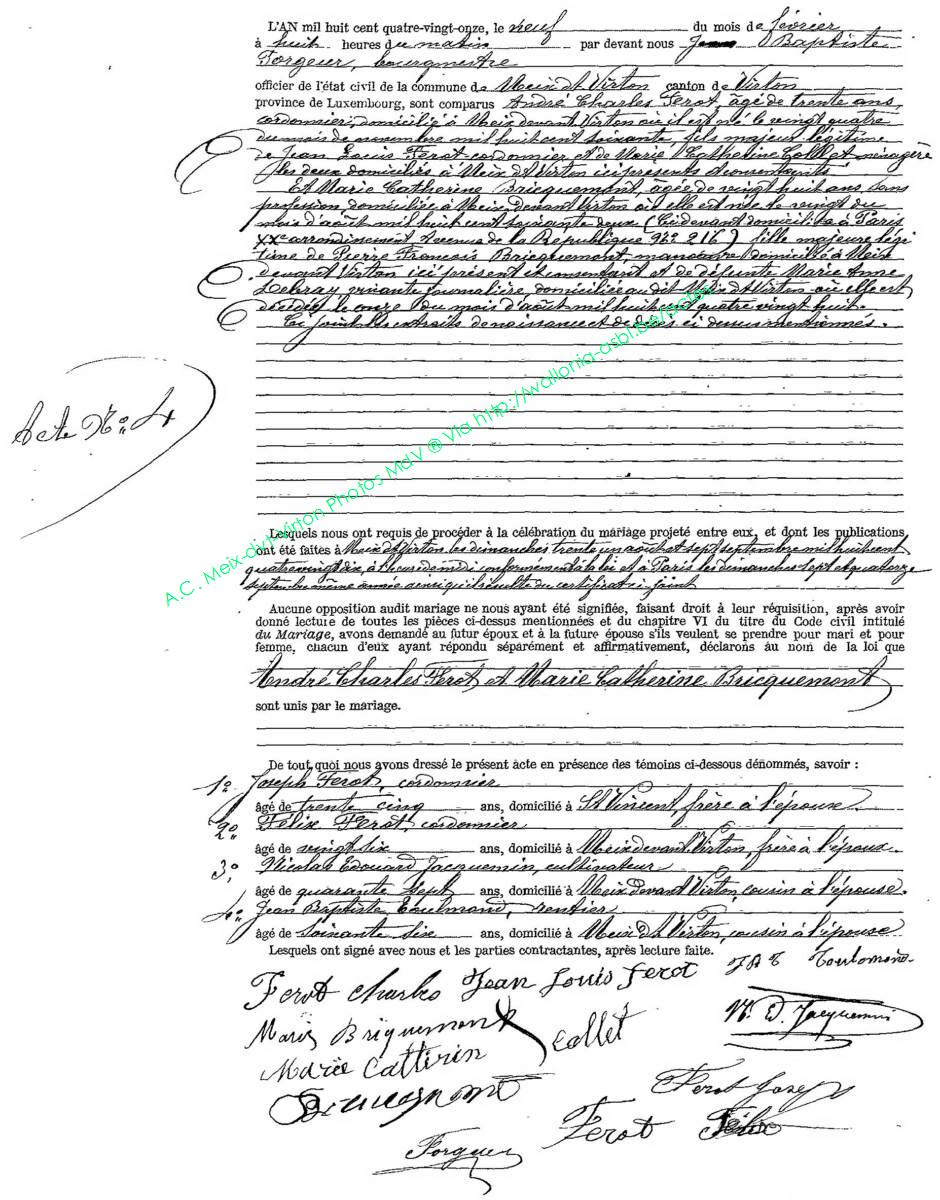 L'AN mil huit cent quatre-vingt-onze, le neuf du mois de février
à huit heures du matin par devant nous Jean Baptiste
Forgeur, bourgmestre
officier de l'état civil de la commune de Meix dt Virton canton de Virton
province de Luxembourg, sont comparus André Charles Ferot, âgé de trente ans,
cordonnier, domicilié à Meix devant Virton où il est né le vingt quatre
du mois de novembre mil huit cent soixante, fils majeur légitime
de Jean Louis Ferot cordonnier et de Marie Catherine Collet ménagère
les deux domiciliés à Meix dt Virton ici présents et consentants
Et Marie Catherine Bricquemont, âgée de vingt huit ans sans
profession domiciliée à Meix devant Virton où elle est née le vingt du
mois d'août mil huit cent soixante deux (Ci devant domiciliée à Paris
XXe arrondissement Avenue de la République 216) fille majeure légi
time de Pierre François Bricquemont, manoeuvre domicilié à Meix
devant Virton ici présent et consentant et de défunte Marie Anne
vivante journalière, domiciliée au dit Meix dt Virton où elle est
décédée le onze du mois d'août mil huit cent quatre vingt huit.
Ci joint les extraits de naissance et de décès ci dessus mentionnés.
Acte No 4
A.C. Meix-dvt-Virton Photos MdV ® Via http://wallonia-asbl.be/actes
Lesquels nous ont requis de procéder à la célébration du mariage projeté entre eux, et dont les publications
ont été faites à Meix dt Virton les dimanches trente un août et sept septembre mil huit cent
quatre vingt dix, à l'heure de midi conformément à la loi et à Paris les dimanches sept et quatorze
septembre même année ainsi qu'il résulte du certificat ci joint
Aucune opposition audit mariage ne nous ayant été signifiée, faisant droit à leur réquisition, après avoir
donné lecture de toutes les pièces ci-dessus mentionnées et du chapitre VI du titre du Code civil intitulé
du Mariage, avons demandé au futur époux et à la future épouse s'ils veulent se prendre pour mari et pour
femme, chacun d'eux ayant répondu séparément et affirmativement, déclarons au nom de la loi que
André Charles Ferot et Marie Catherine Bricquemont
sont unis par le mariage.
De tout quoi nous avons dressé le présent acte en présence des témoins ci-dessous dénommés, savoir :
1o Joseph Ferot, cordonnier
âgé de trente cinq ans, domicilié à St Vincent, frère à l'époux.
2o Félix Ferot, cordonnier
âgé de vingt six ans, domicilié à Meix devant Virton, frère à l'époux.
3o Nicolas Edouard Jacquemin, cultivateur
âgé de quarante sept ans, domicilié à Meix devant Virton, cousin à l'épouse.
4o Jean Baptiste Toulmond, rentier
âgé de soixante six ans, domicilié à Meix dt Virton, cousin à l'épouse
Lesquels ont signé avec nous et les parties contractantes, après lecture faite.
Ferot Charles Jean Louis Ferot Toulomond
Marie Briquemont Collet N. E. Jacquemin
Marie Catterin
Ferot Josep
Ferot Félix
Forgeur